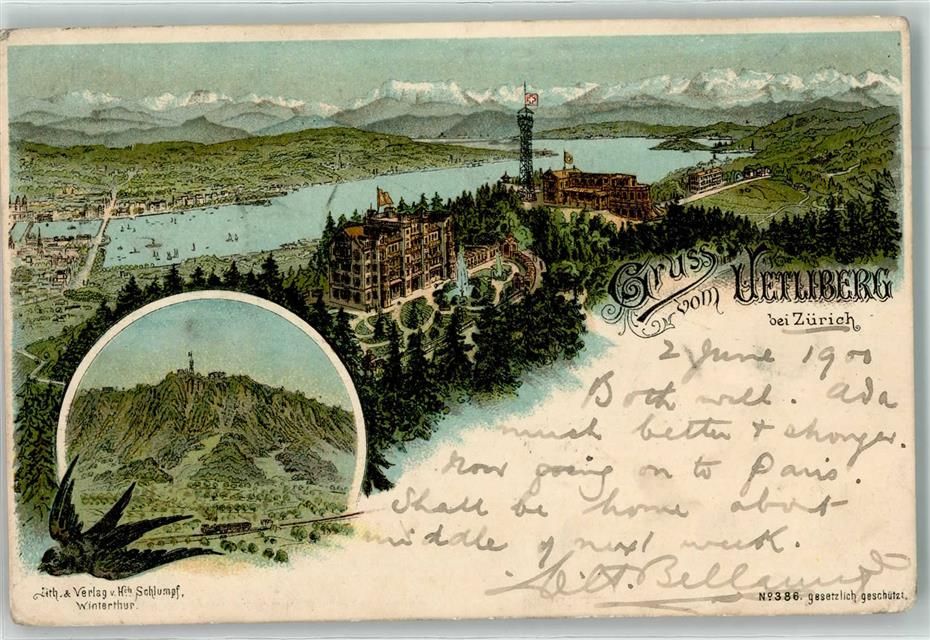 Gruss
vom UETLIBERG
bei Zürich
2 June 1900
Both well. Ada
much better & stronger.
Now going on to Paris.
Shall be home about
middle of next week.
Bellamy
Lith. & Verlag v. Hch Schlumpf,
Winterthur.
No 386. gesetzlich geschützt.